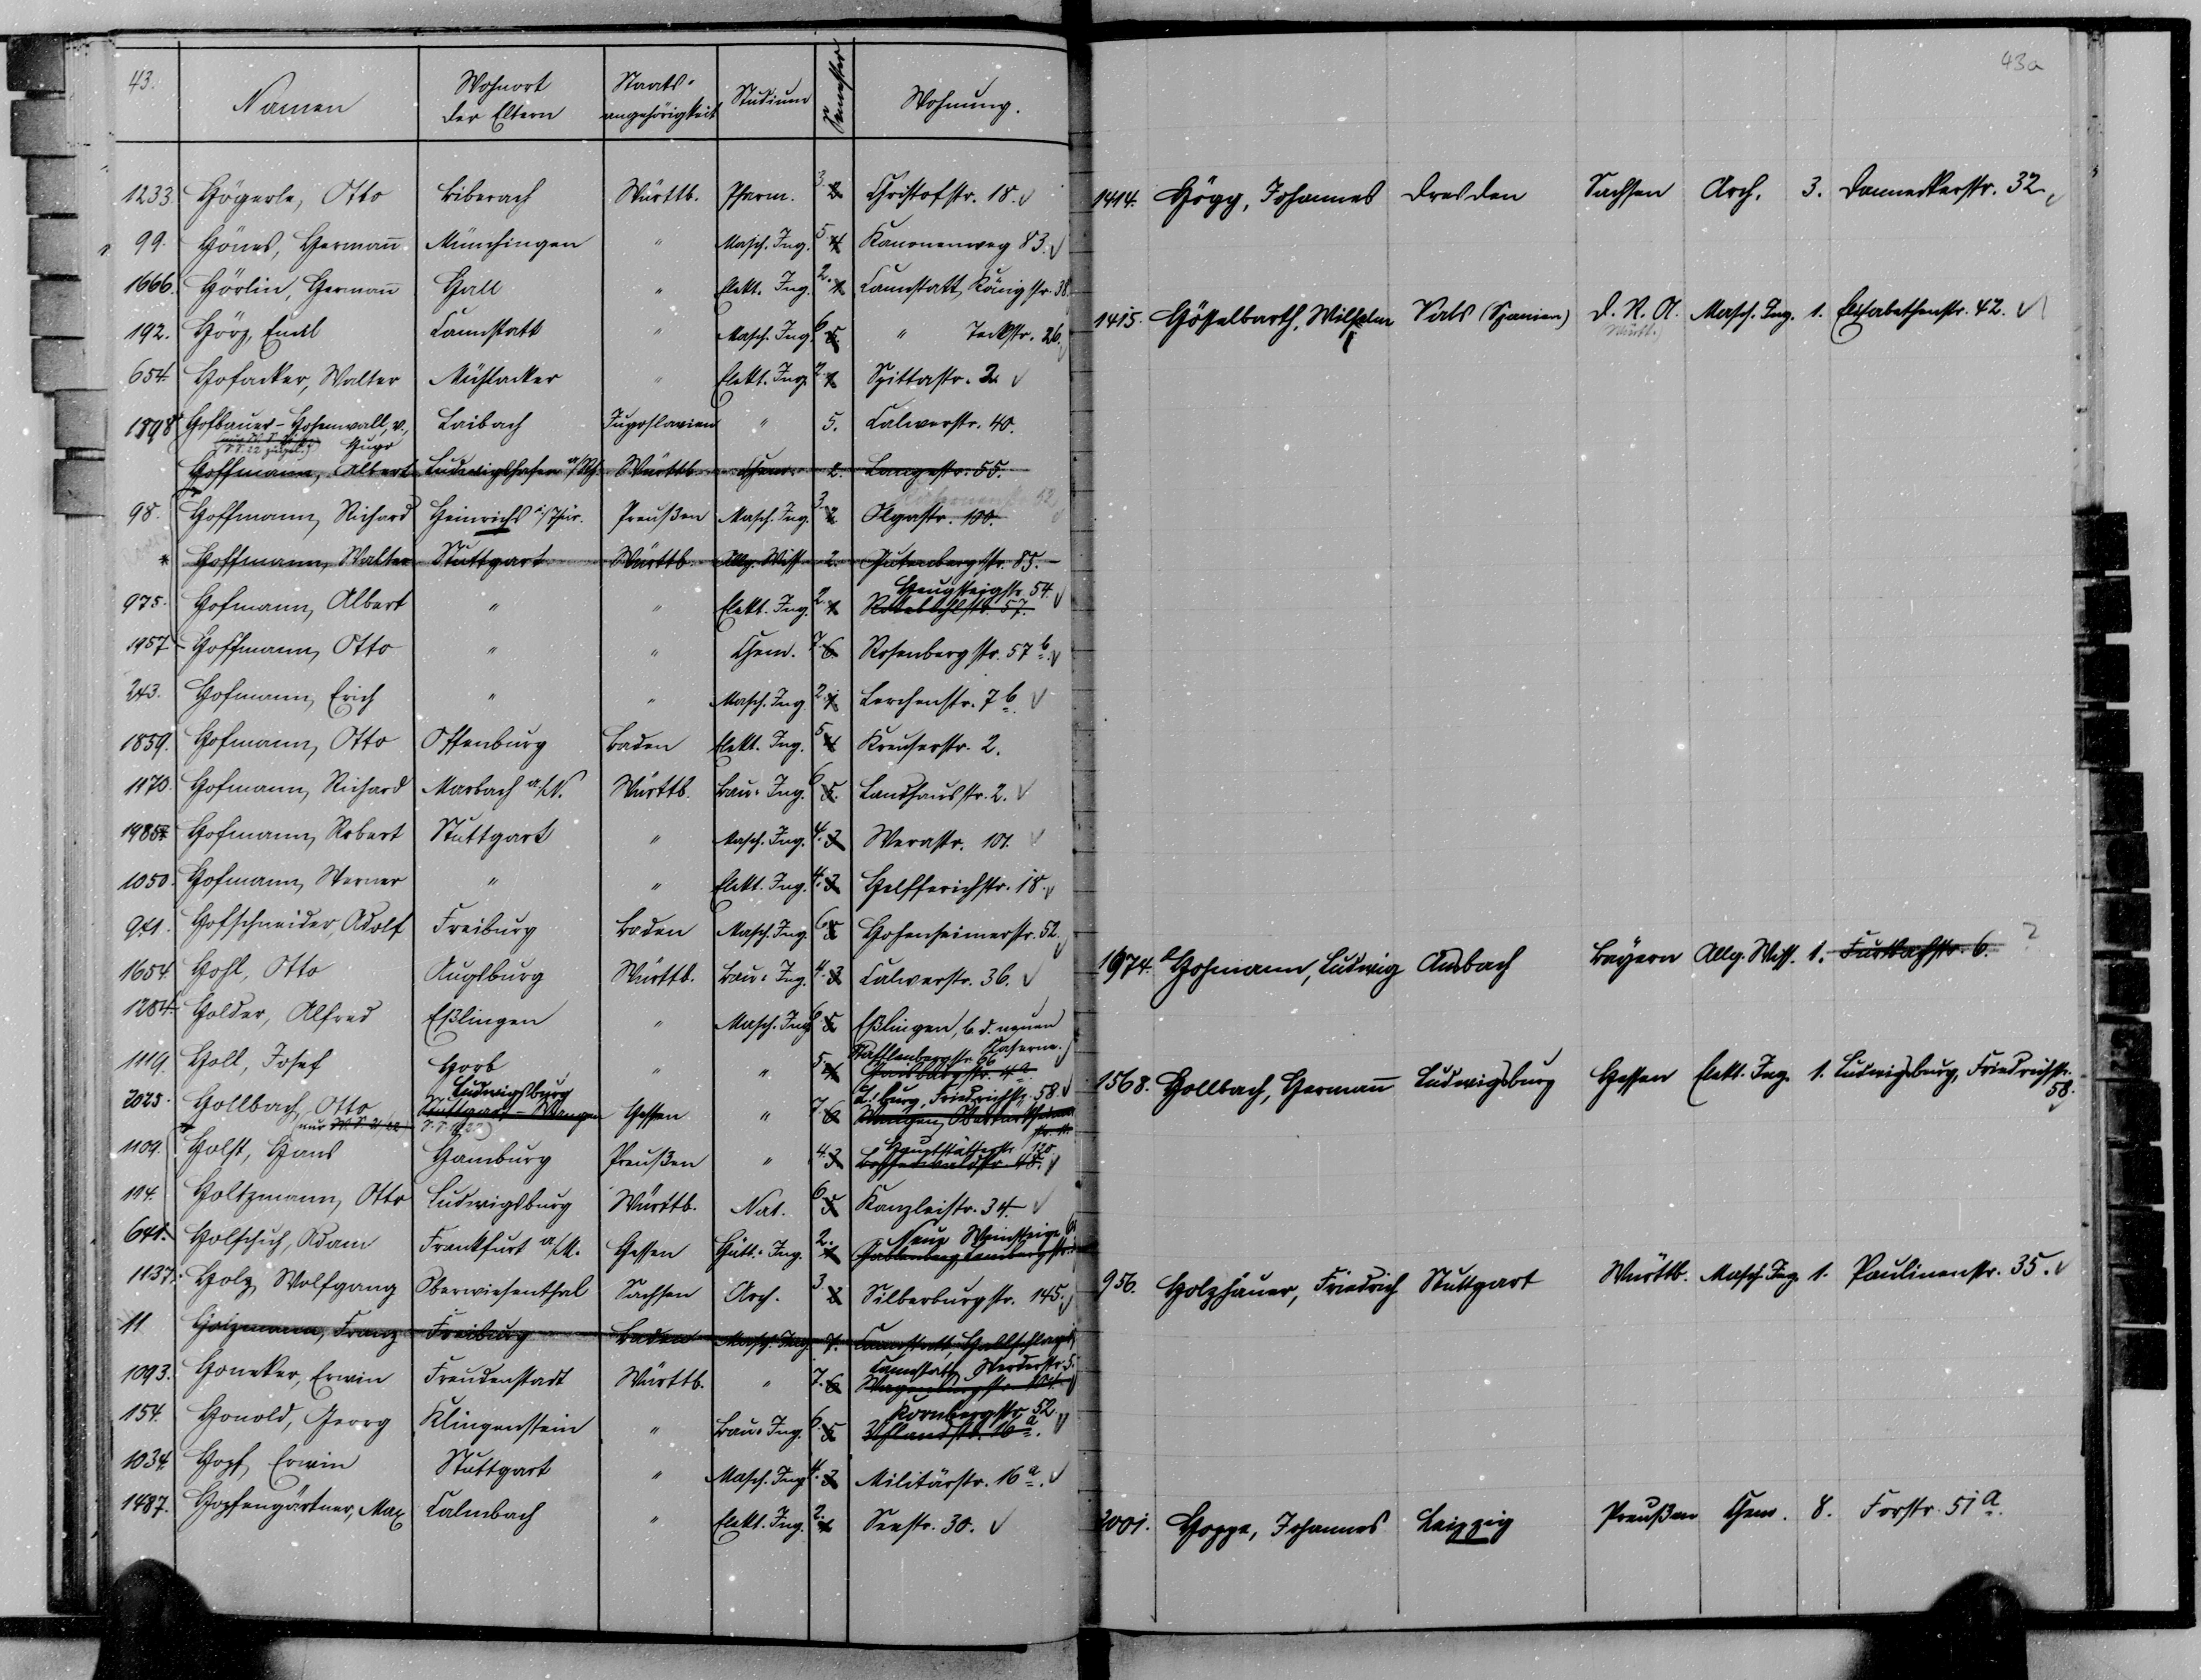 43.
Namen
Wohnort der Eltern
Staats-angehörigkeit
Studium
Semester
Wohnung.
1233. Högerle, Otto Biberach Württb. Pharm. 3. 2. Christofstr. 18.
99. Hönes, Hermann. Münchingen " Masch. Ing. 5. 4. Kanonenweg 83.
1666. Hörlin, Hermann Hall " Elekt. Ing. 2. 1. Cannstatt, Königstr. 38.
192. Hörz, Emil Cannstatt " Masch. Ing. 6. 5. " Teckstr. 26.
654. Hofacker, Walter Mühlacker " Elekt. Ing. 2. 1. Spittastr. 2.
1898 Hofbauer-Hohenwall, v., Hugo Laibach Jugoslavien " 5. Calwerstr. 40.
Hoffmann, Albert Ludwigshafen a/Rh. Württb. Chem. 2. Langestr. 55.
98. Hoffmann, Richard Heinrichs i/Thür. Preußen Masch. Ing. 3. 2. Olgastr. 100. 52
* Hoffmann, Walter Stuttgart Württb. Allg. Wiss. 2. Gutenbergstr. 85.
975. Hofmann, Albert " " Elekt. Ing. 2. 1. Heusteigstr. 54. Rotebühlstr. 57.
1957 Hoffmann, Otto " " Chem. 7. 6. Rosenbergstr. 57 b.
243. Hofmann, Erich " " Masch. Ing. 2. 1. Lerchenstr. 7 b.
1859. Hofmann, Otto Offenburg Baden Elekt. Ing. 5. 4. Kreuserstr. 2.
1170. Hofmann, Richard Marbach a/N. Württb. Bau-Ing. 6. 5. Landhausstr. 2.
1985 Hofmann, Robert Stuttgart " Masch. Ing. 4. 3. Werastr. 101.
1050. Hofmann, Werner " " Elekt. Ing. 4. 3. Helfferichstr. 18.
941. Hofschneider Adolf Freiburg Baden Masch. Ing. 6. 5. Hohenheimerstr. 52.
1654 Hohl, Otto Augsburg Württb. Bau-Ing. 4. 3. Calwerstr. 36.
1284. Holder, Alfred Eßlingen " Masch. Ing. 6. 5. Eßlingen, b. d. neuen Kaserne.
1119. Holl, Josef Horb " " 5. 4. Stafflenbergstr. 66 Gaisburgstr. 4 a
2025. Hollbach, Otto Ludwigsburg Stuttgart-Wangen Hessen " 7. 6. L'burg, Friedrichstr. 58. Wangen,
1109. Holst, Hans Hamburg Preußen " 4. 3. Hauptstätterstr. 120. 48.
114. Holtzmann, Otto Ludwigsburg Württb. Nat. 6. 5. Kanzleistr. 34.
641. Holschuh, Adam Frankfurt a/M. Hessen Hütt.-Ing. 2. 1. Neue Weinsteige 6.
1137. Holz, Wolfgang Oberwiesenthal Sachsen Arch. 3. 2. Silberburgstr. 145.
11 Holzmann, Franz Freiburg Baden Masch. Ing. 7. Cannstatt, Hallschlag
1093. Honeker, Erwin Freudenstadt Württb. " 7. 6. Cannstatt, Werderstr. 5. Wagenburgstr. 101.
154. Honold, Georg Klingenstein " Bau-Ing. 6. 5. Kornbergstr. 52 Uhlandstr. 16 a.
1034. Hopf, Erwin Stuttgart " Masch. Ing. 4. 3. Militärstr. 16 a.
1487. Hopfengärtner, Max Calmbach " Elekt. Ing. 2. 1. Seestr. 30.
43a
1414. Högg, Johannes Dresden Sachsen Arch. 3. Danneckerstr. 32.
1415. Hösselbarth, Wilhelm Vals (Spanien) D. R. A. Württ.) Masch. Ing. 1. Elisabethenstr. 42.
1974. Hohmann, Ludwig Ansbach Bayern Allg. Wiss. 1. Furtbachstr. 6. ?
1568. Hollbach, Hermann Ludwigsburg Hessen Elekt. Ing. 1. Ludwigsburg, Friedrichstr. 58.
956. Holzhäuer, Friedrich Stuttgart Württb. Masch. Ing. 1. Paulinenstr. 35.
2001. Hoppe, Johannes Leipzig Preußen Chem. 8. Forststr. 51 a.